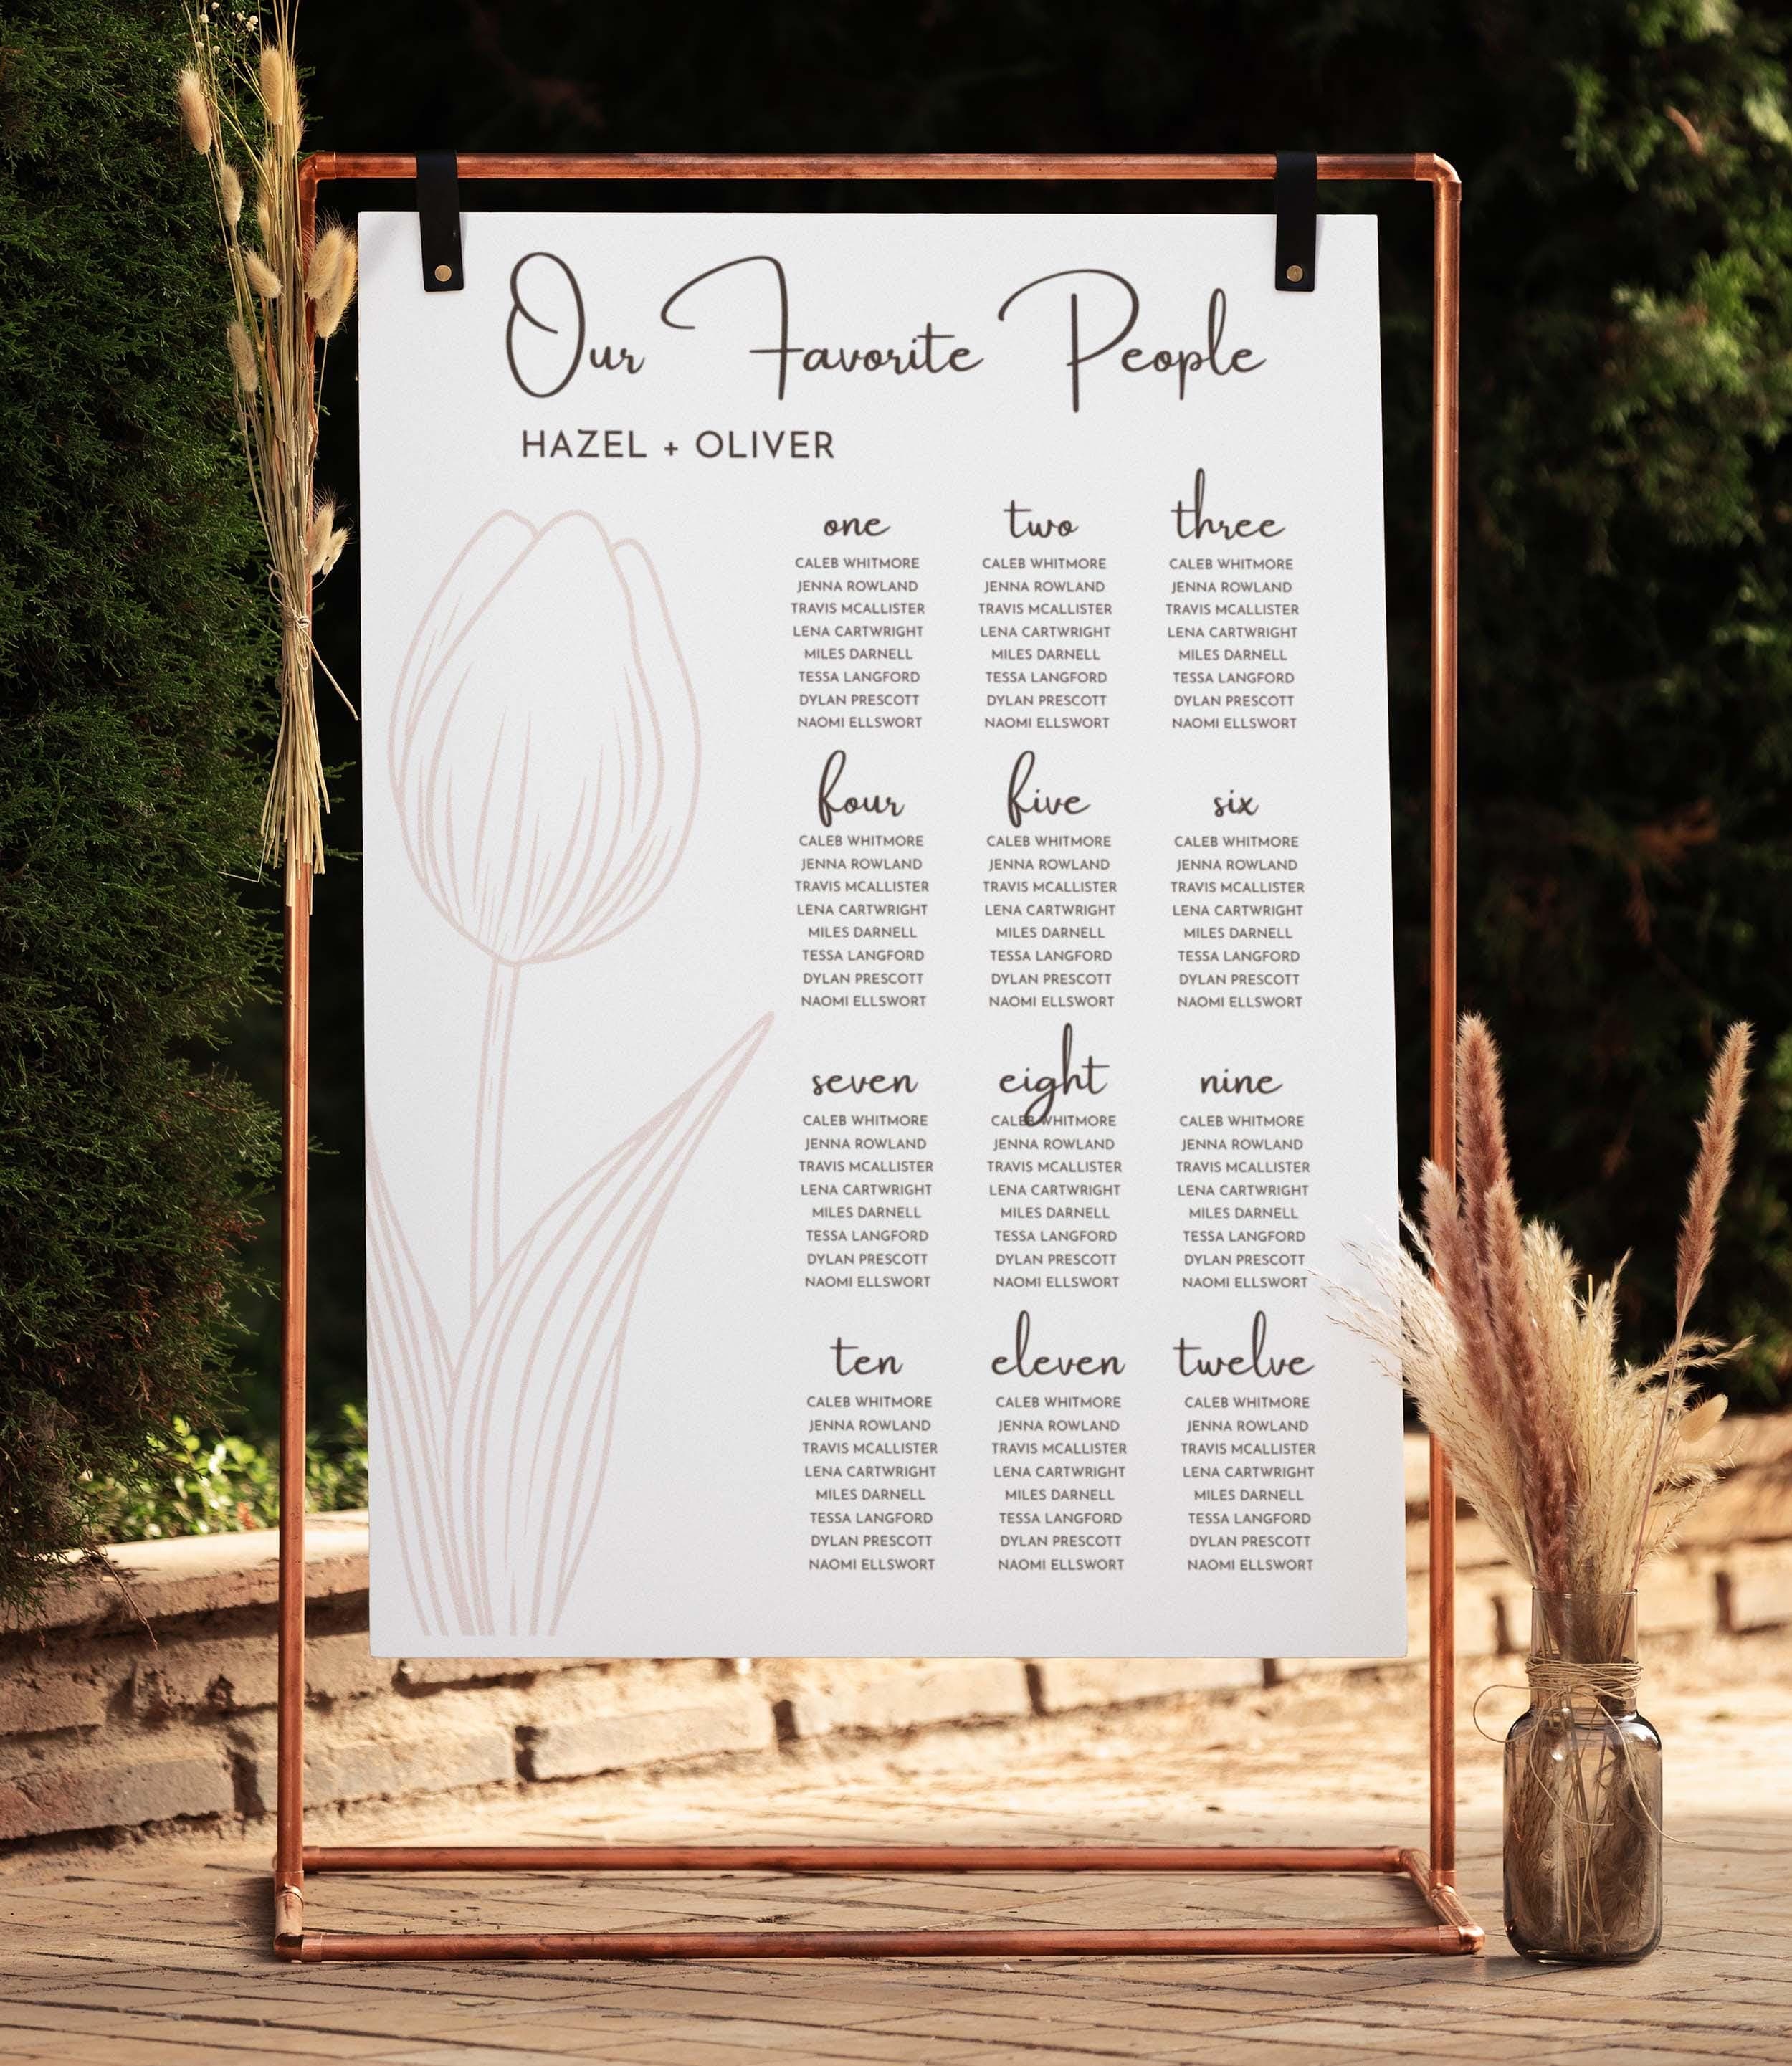 Our Favorite People
HAZEL + OLIVER
one
CALEB WHITMORE
JENNA ROWLAND
TRAVIS MCALLISTER
LENA CARTWRIGHT
MILES DARNELL
TESSA LANGFORD
DYLAN PRESCOTT
NAOMI ELLSWORT
two
CALEB WHITMORE
JENNA ROWLAND
TRAVIS MCALLISTER
LENA CARTWRIGHT
MILES DARNELL
TESSA LANGFORD
DYLAN PRESCOTT
NAOMI ELLSWORT
three
CALEB WHITMORE
JENNA ROWLAND
TRAVIS MCALLISTER
LENA CARTWRIGHT
MILES DARNELL
TESSA LANGFORD
DYLAN PRESCOTT
NAOMI ELLSWORT
four
CALEB WHITMORE
JENNA ROWLAND
TRAVIS MCALLISTER
LENA CARTWRIGHT
MILES DARNELL
TESSA LANGFORD
DYLAN PRESCOTT
NAOMI ELLSWORT
five
CALEB WHITMORE
JENNA ROWLAND
TRAVIS MCALLISTER
LENA CARTWRIGHT
MILES DARNELL
TESSA LANGFORD
DYLAN PRESCOTT
NAOMI ELLSWORT
six
CALEB WHITMORE
JENNA ROWLAND
TRAVIS MCALLISTER
LENA CARTWRIGHT
MILES DARNELL
TESSA LANGFORD
DYLAN PRESCOTT
NAOMI ELLSWORT
seven
CALEB WHITMORE
JENNA ROWLAND
TRAVIS MCALLISTER
LENA CARTWRIGHT
MILES DARNELL
TESSA LANGFORD
DYLAN PRESCOTT
NAOMI ELLSWORT
eight
CALEB WHITMORE
JENNA ROWLAND
TRAVIS MCALLISTER
LENA CARTWRIGHT
MILES DARNELL
TESSA LANGFORD
DYLAN PRESCOTT
NAOMI ELLSWORT
nine
CALEB WHITMORE
JENNA ROWLAND
TRAVIS MCALLISTER
LENA CARTWRIGHT
MILES DARNELL
TESSA LANGFORD
DYLAN PRESCOTT
NAOMI ELLSWORT
ten
CALEB WHITMORE
JENNA ROWLAND
TRAVIS MCALLISTER
LENA CARTWRIGHT
MILES DARNELL
TESSA LANGFORD
DYLAN PRESCOTT
NAOMI ELLSWORT
eleven
CALEB WHITMORE
JENNA ROWLAND
TRAVIS MCALLISTER
LENA CARTWRIGHT
MILES DARNELL
TESSA LANGFORD
DYLAN PRESCOTT
NAOMI ELLSWORT
twelve
CALEB WHITMORE
JENNA ROWLAND
TRAVIS MCALLISTER
LENA CARTWRIGHT
MILES DARNELL
TESSA LANGFORD
DYLAN PRESCOTT
NAOMI ELLSWORT